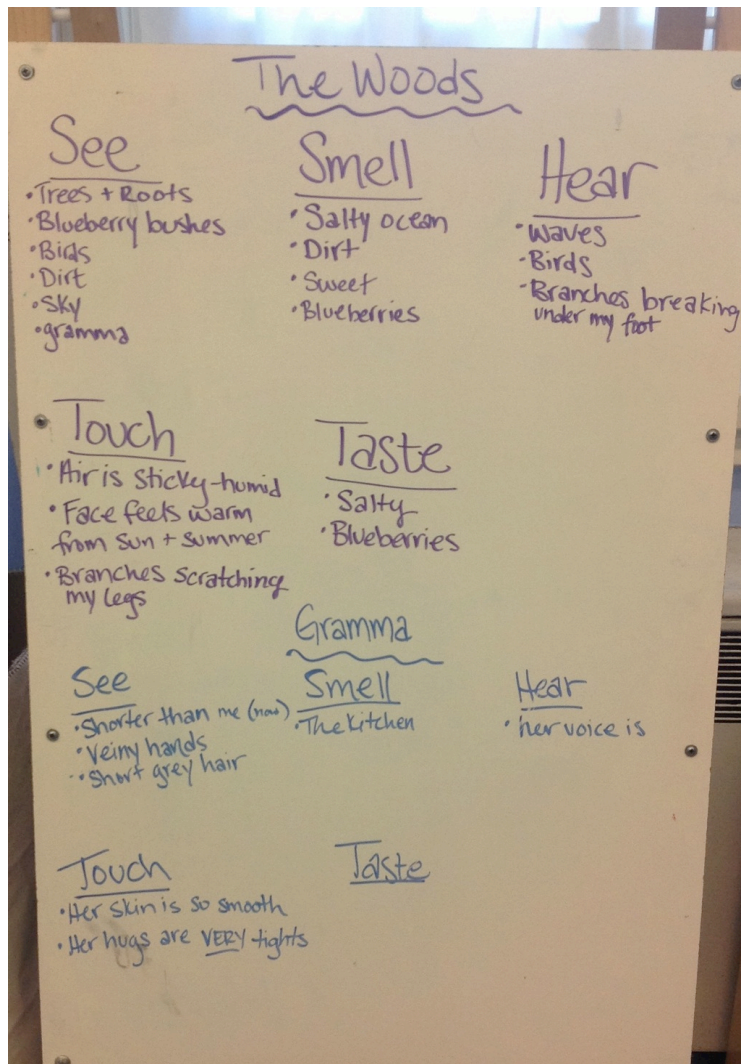 The Woods
See
• Trees + Roots
• Blueberry bushes
• Birds
• Dirt
• Sky
• gramma
Smell
• Salty ocean
• Dirt
• Sweet
• Blueberries
Hear
• Waves
• Birds
• Branches breaking
under my foot
Touch
• Air is sticky-humid
• Face feels warm
from sun + summer
• Branches scratching
my legs
Taste
• Salty
• Blueberries
Gramma
See
• Shorter than me (now)
• Veiny hands
• Short grey hair
Smell
• The kitchen
Hear
• her voice is
Touch
• Her skin is so smooth
• Her hugs are VERY tights
Taste